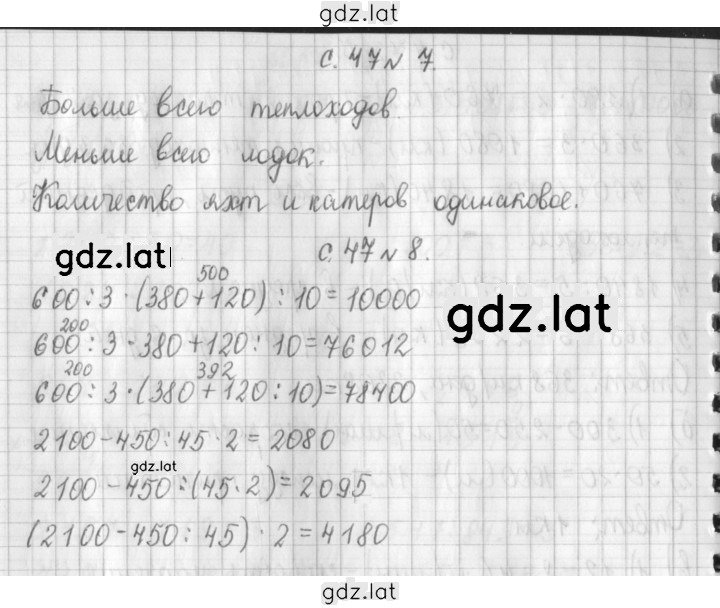 gdz.lat
с. 47 № 7.
Больше всего теплоходов.
Меньше всего лодок.
Количество яхт и катеров одинаковое.
gdz.lat
с. 47 № 8.
500
600:3·(380+120):10=10000
gdz.lat
200
600:3·380+120:10=76012
200 392
600:3·(380+120:10)=78400
2100-450:45·2=2080
gdz.lat
2100-450:(45·2)=2095
(2100-450:45)·2=4180
gdz.lat